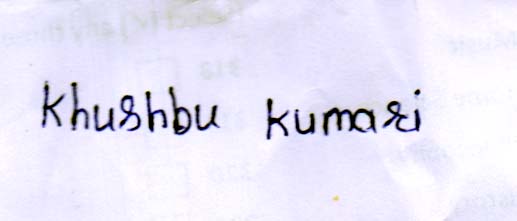 Khushbu kumari